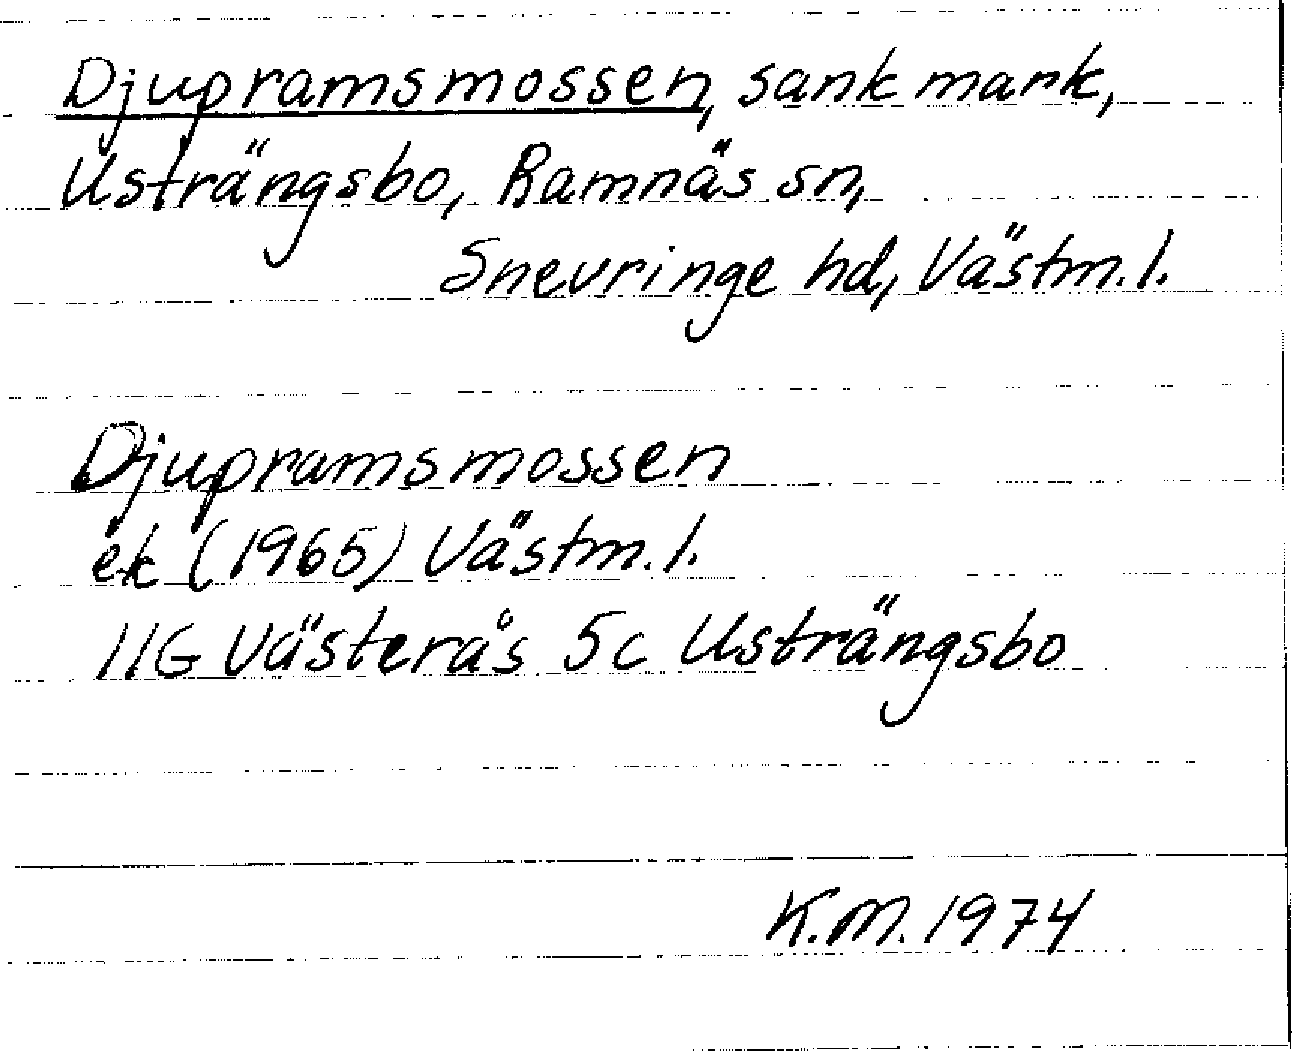 Djupramsmossen, sank mark,
Usträngsbo, Ramnäs sn,
Snevringe hd, Västm. l.
Djupramsmossen
ek (1965) Västm. l.
11G Västerås 5c Usträngsbo
K.M. 1974